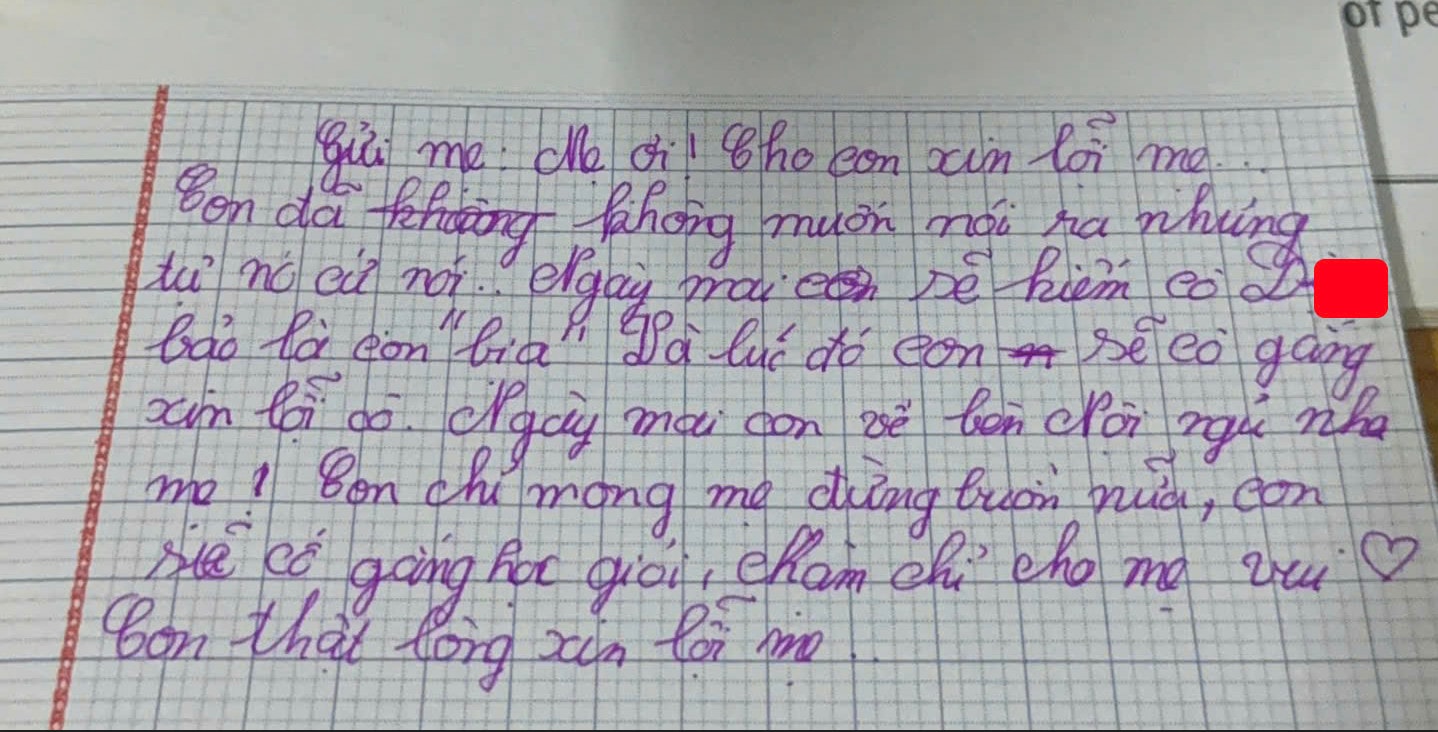 of pe
Gửi mẹ: Mẹ ơi! Cho con xin lỗi mẹ...
Con đã không không muốn nói ra những
từ nó cứ nói... Ngày mai con sẽ kiếm cô
bảo là con "bịa" Và lúc đó con sẽ cố gắng
xin lỗi cô. Ngày mai con về bên Nội ngủ nha
mẹ! Con chỉ mong mẹ đừng buồn nữa, con
sẽ cố gắng học giỏi, chăm chỉ cho mẹ vui ♡
Con thật lòng xin lỗi mẹ...